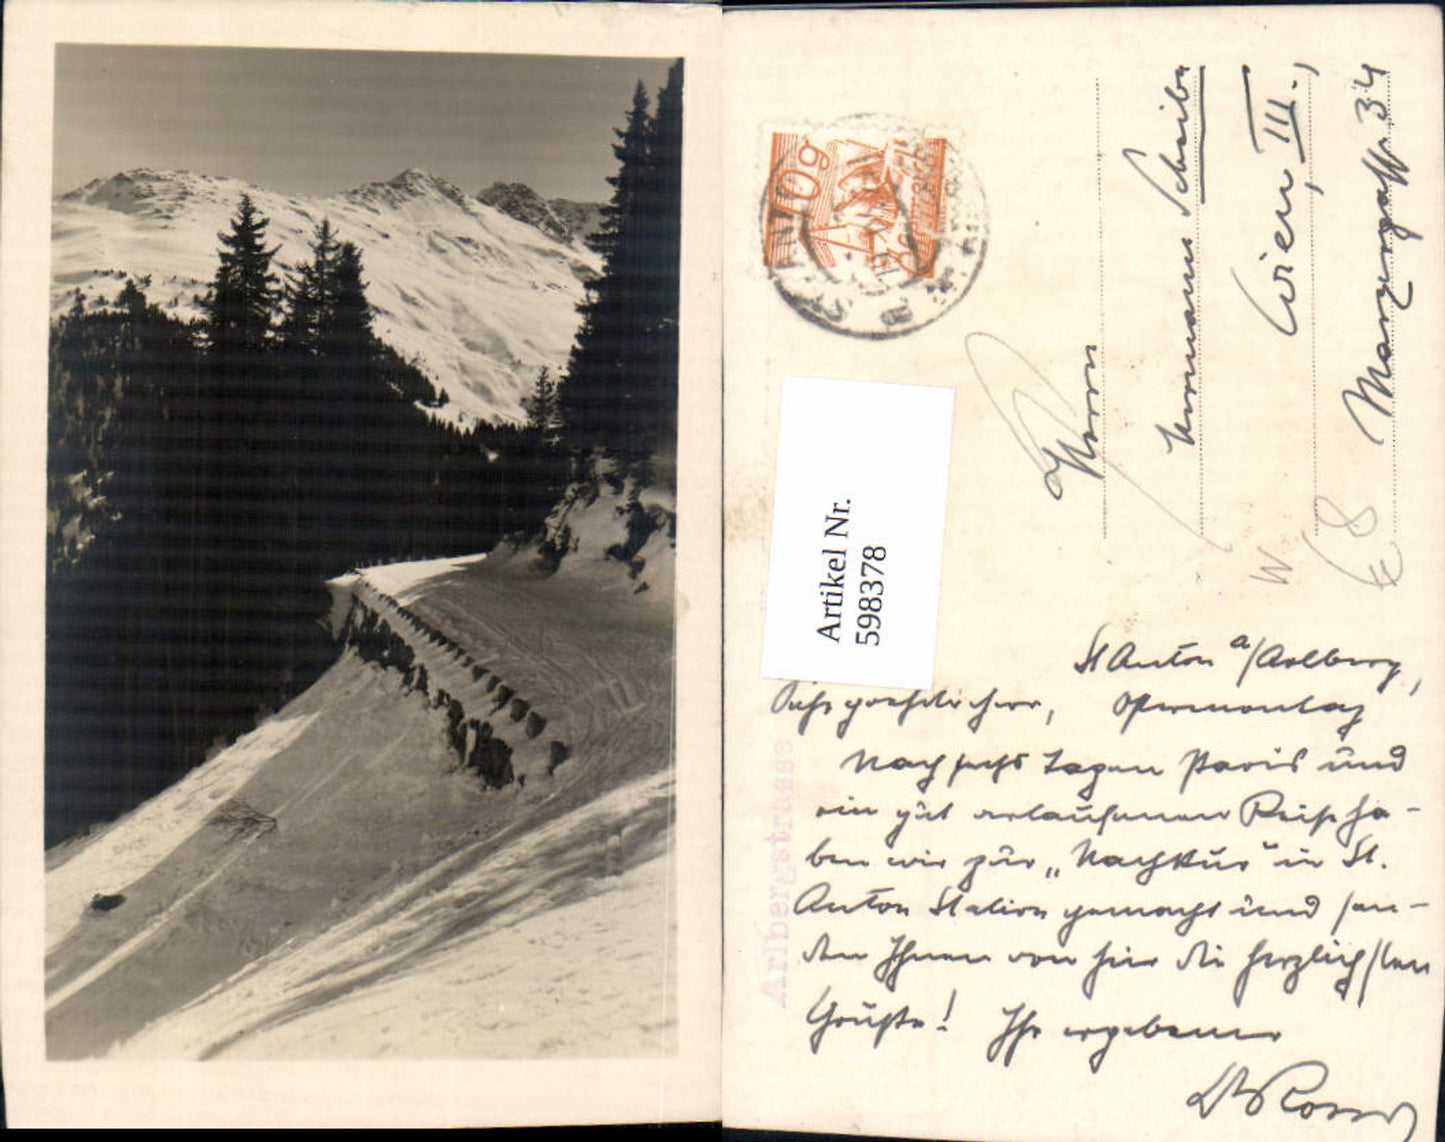 Artikel Nr.
598378
Arlbergstrasse
10g
Herrn
Hermann Scheibe
Wien, III.,
Marxergasse 34
W
St Anton a/Arlberg,
Sehr geehrter Herr, Ostermontag
Nach sechs Tagen Paris und
ein gut verlaufenen Reise ha-
ben wir zur „Nachkur“ in St.
Anton Station gemacht und sen-
den Ihnen von hier die herzlichsten
Grüsse! Ihr ergebener